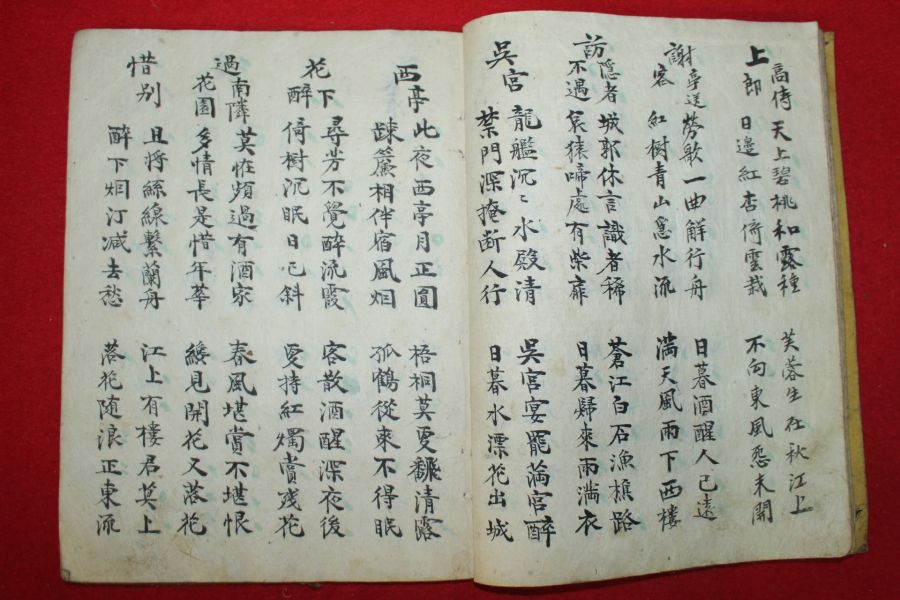 上高侍郎
天上碧桃和露種 芙蓉生在秋江上
日邊紅杏倚雲栽 不向東風怨未開
謝亭送客
勞歌一曲解行舟 日暮酒醒人已遠
紅樹青山急水流 滿天風雨下西樓
訪隱者不遇
城郭休言識者稀 蒼江白石漁樵路
哀猿啼處有柴扉 日暮歸來雨滿衣
吳宮
龍艦沉〻水殿清 吳宮宴罷滿宮醉
禁門深掩断人行 日暮水漂花出城
西亭
此夜西亭月正圓 梧桐莫更翻清露
踈簾相伴宿風烟 孤鶴從來不得眠
花下醉
尋芳不覺醉流霞 客散酒醒深夜後
倚樹沉眠日已斜 更持紅燭賞殘花
過南隣花園
莫恠頻過有酒家 春風堪賞不堪恨
多情長是惜年華 纔見開花又落花
惜別
且將絲線繫蘭舟 江上有樓君莫上
醉下烟汀减去愁 落花随浪正東流